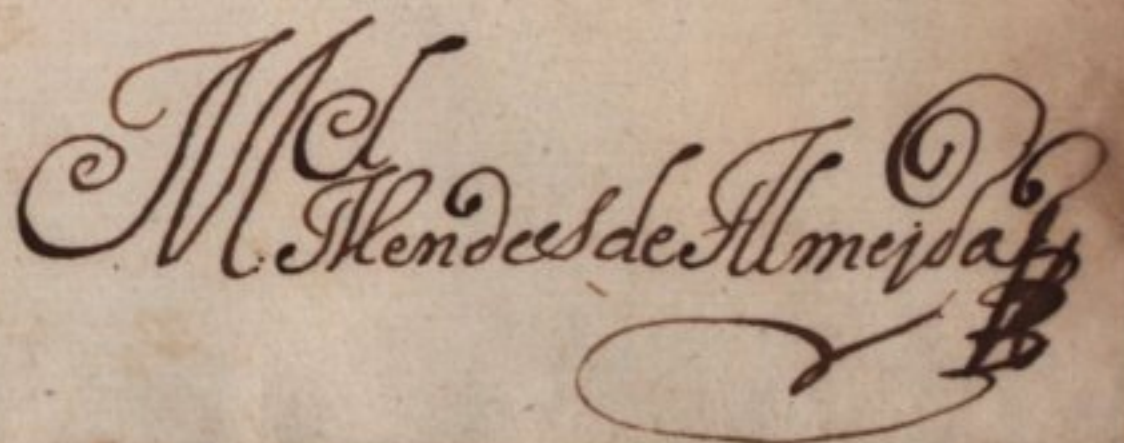 Mel Mendes de Almejda